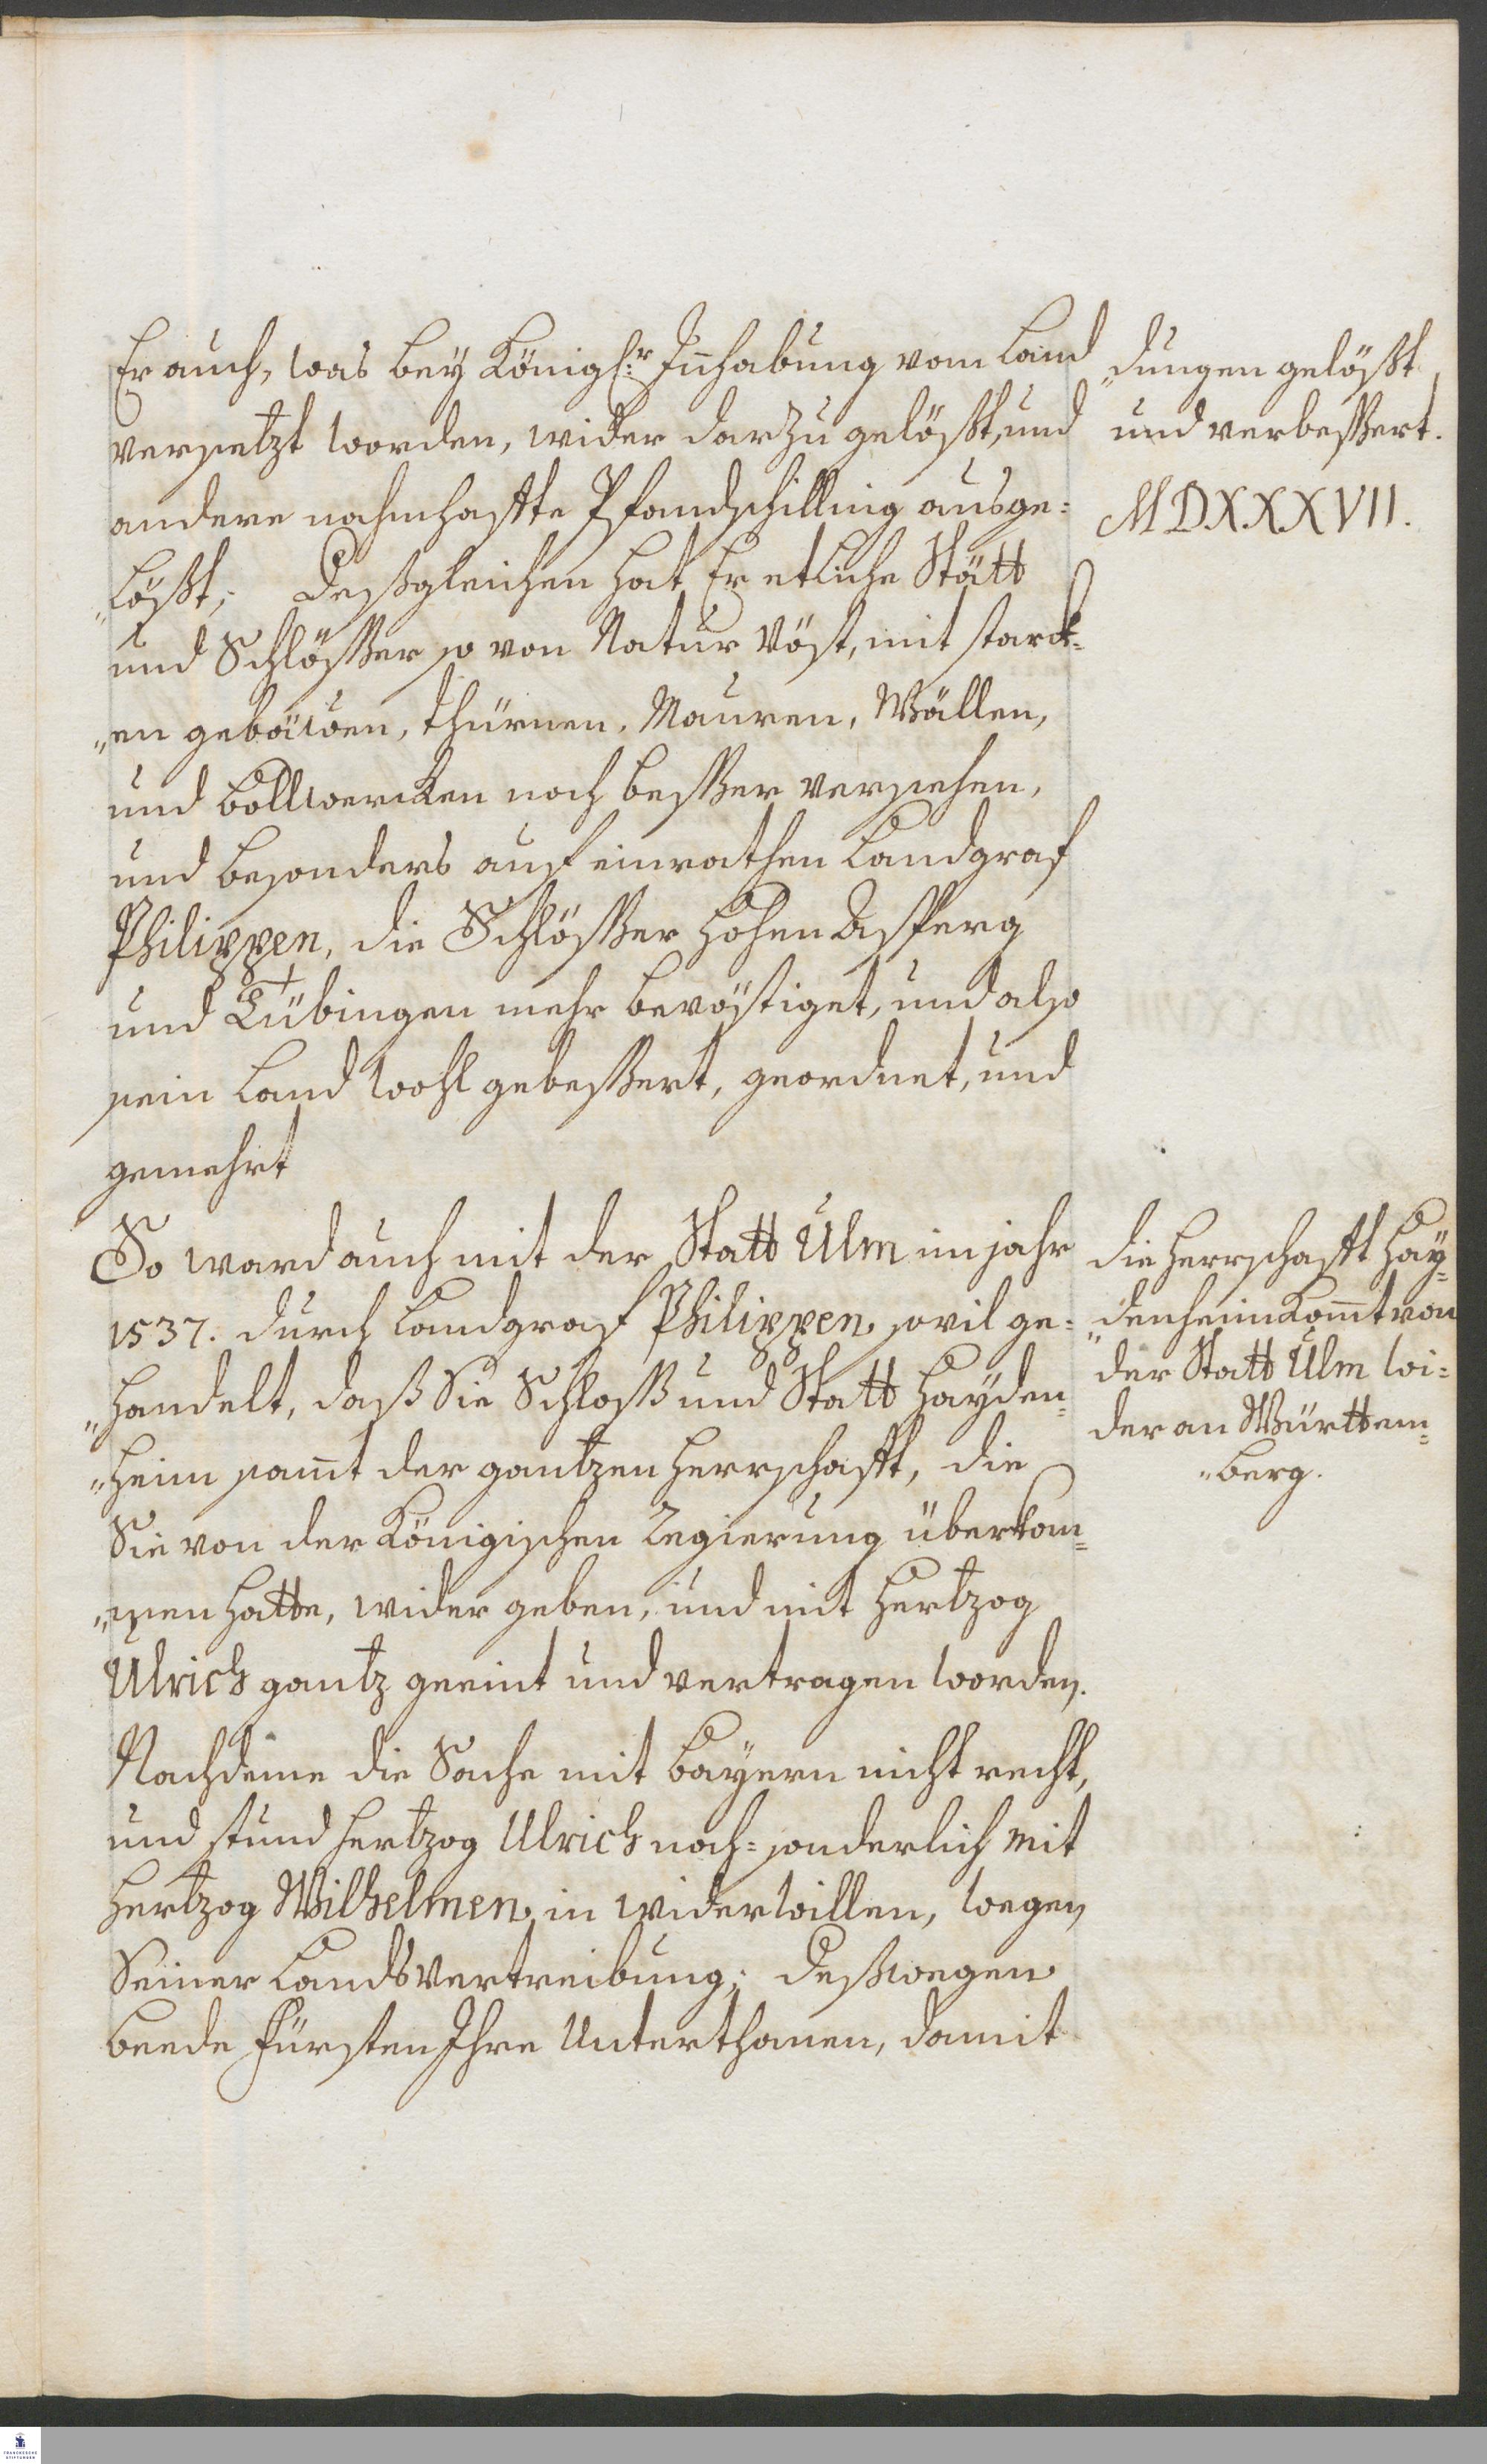 Er auch, was bey Königl:r Inhabung vom Land
versetzt worden, wider darzu gelößt, und
andere nahmhaffte Pfandschilling ausge=
„lößt; Deßgleichen hat Er etliche Stätt
und Schlößer so von Natur vöst, mit starck=
„en gebäwen, thürnen, Mauren, Wällen,
und bollwercken noch beßer versehen,
und besonders auf einrathen Landgraf
Philippen, die Schlößer Hohen Asperg
und Tübingen mehr bevöstiget, und also
sein Land wohl gebeßert, geordnet, und
gemehrt
So ward auch mit der Statt Ulm im jahr
1537. durch Landgraf Philippen sovil ge=
„handelt, daß Sie Schloß und Statt Hayden=
„heim samt der gantzen Herrschafft, die
Sie von der Königischen Regierung überkom=
„men hatte, wider geben, und mit Hertzog
Ulrich gantz geeint und vertragen worden.
Nachdeme die Sache mit Bayern nicht recht,
und stund Hertzog Ulrich noch= sonderlich mit
Hertzog Wilhelmen in widerwillen, wegen
Seiner Landsvertreibung; deßwegen
beede Fürsten Ihre Unterthanen, damit
„dungen gelößt
und verbeßert.
MDXXXVII.
die Herrschafft Hay=
„denheim komt von
der Statt Ulm wi=
der an Württem=
„berg.
FRANCKESCHE
STIFTUNGEN